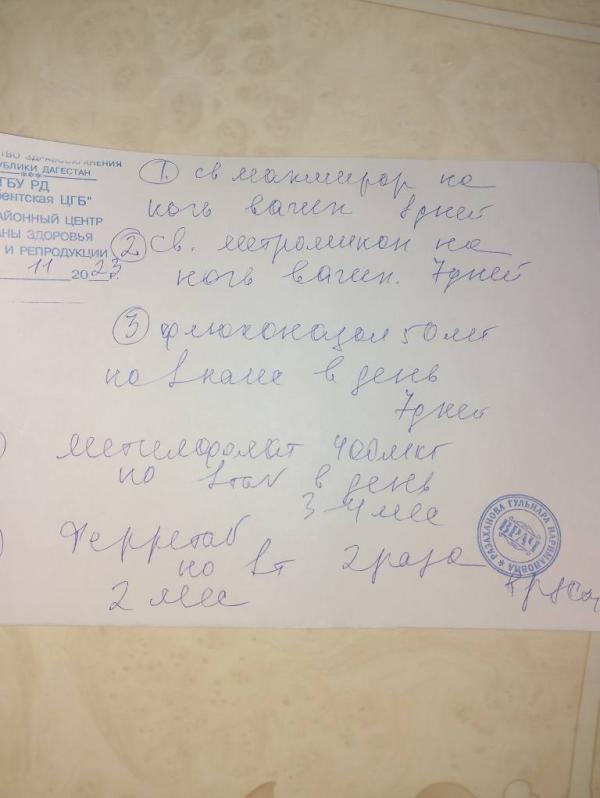 ТВО ЗДРАВООХРАНЕНИЯ
УБЛИКИ ДАГЕСТАН
ГБУ РД
бентская ЦГБ"
АЙОННЫЙ ЦЕНТР
АНЫ ЗДОРОВЬЯ
И РЕПРОДУКЦИИ
11 2023г.
1. св макмирор на
ночь вагин 8дней
2 св. метромикон на
ночь вагин. 7дней
3 флюконазол 50мг
по 1 капс в день
7дней
метилфолат 400мкг
по 1таб в день
3-4мес
Ферретаб
по 1т 2раза
2 мес
РАЗАХАНОВА ГУЛЬНАРА НАРИМАНОВНА
ВРАЧ